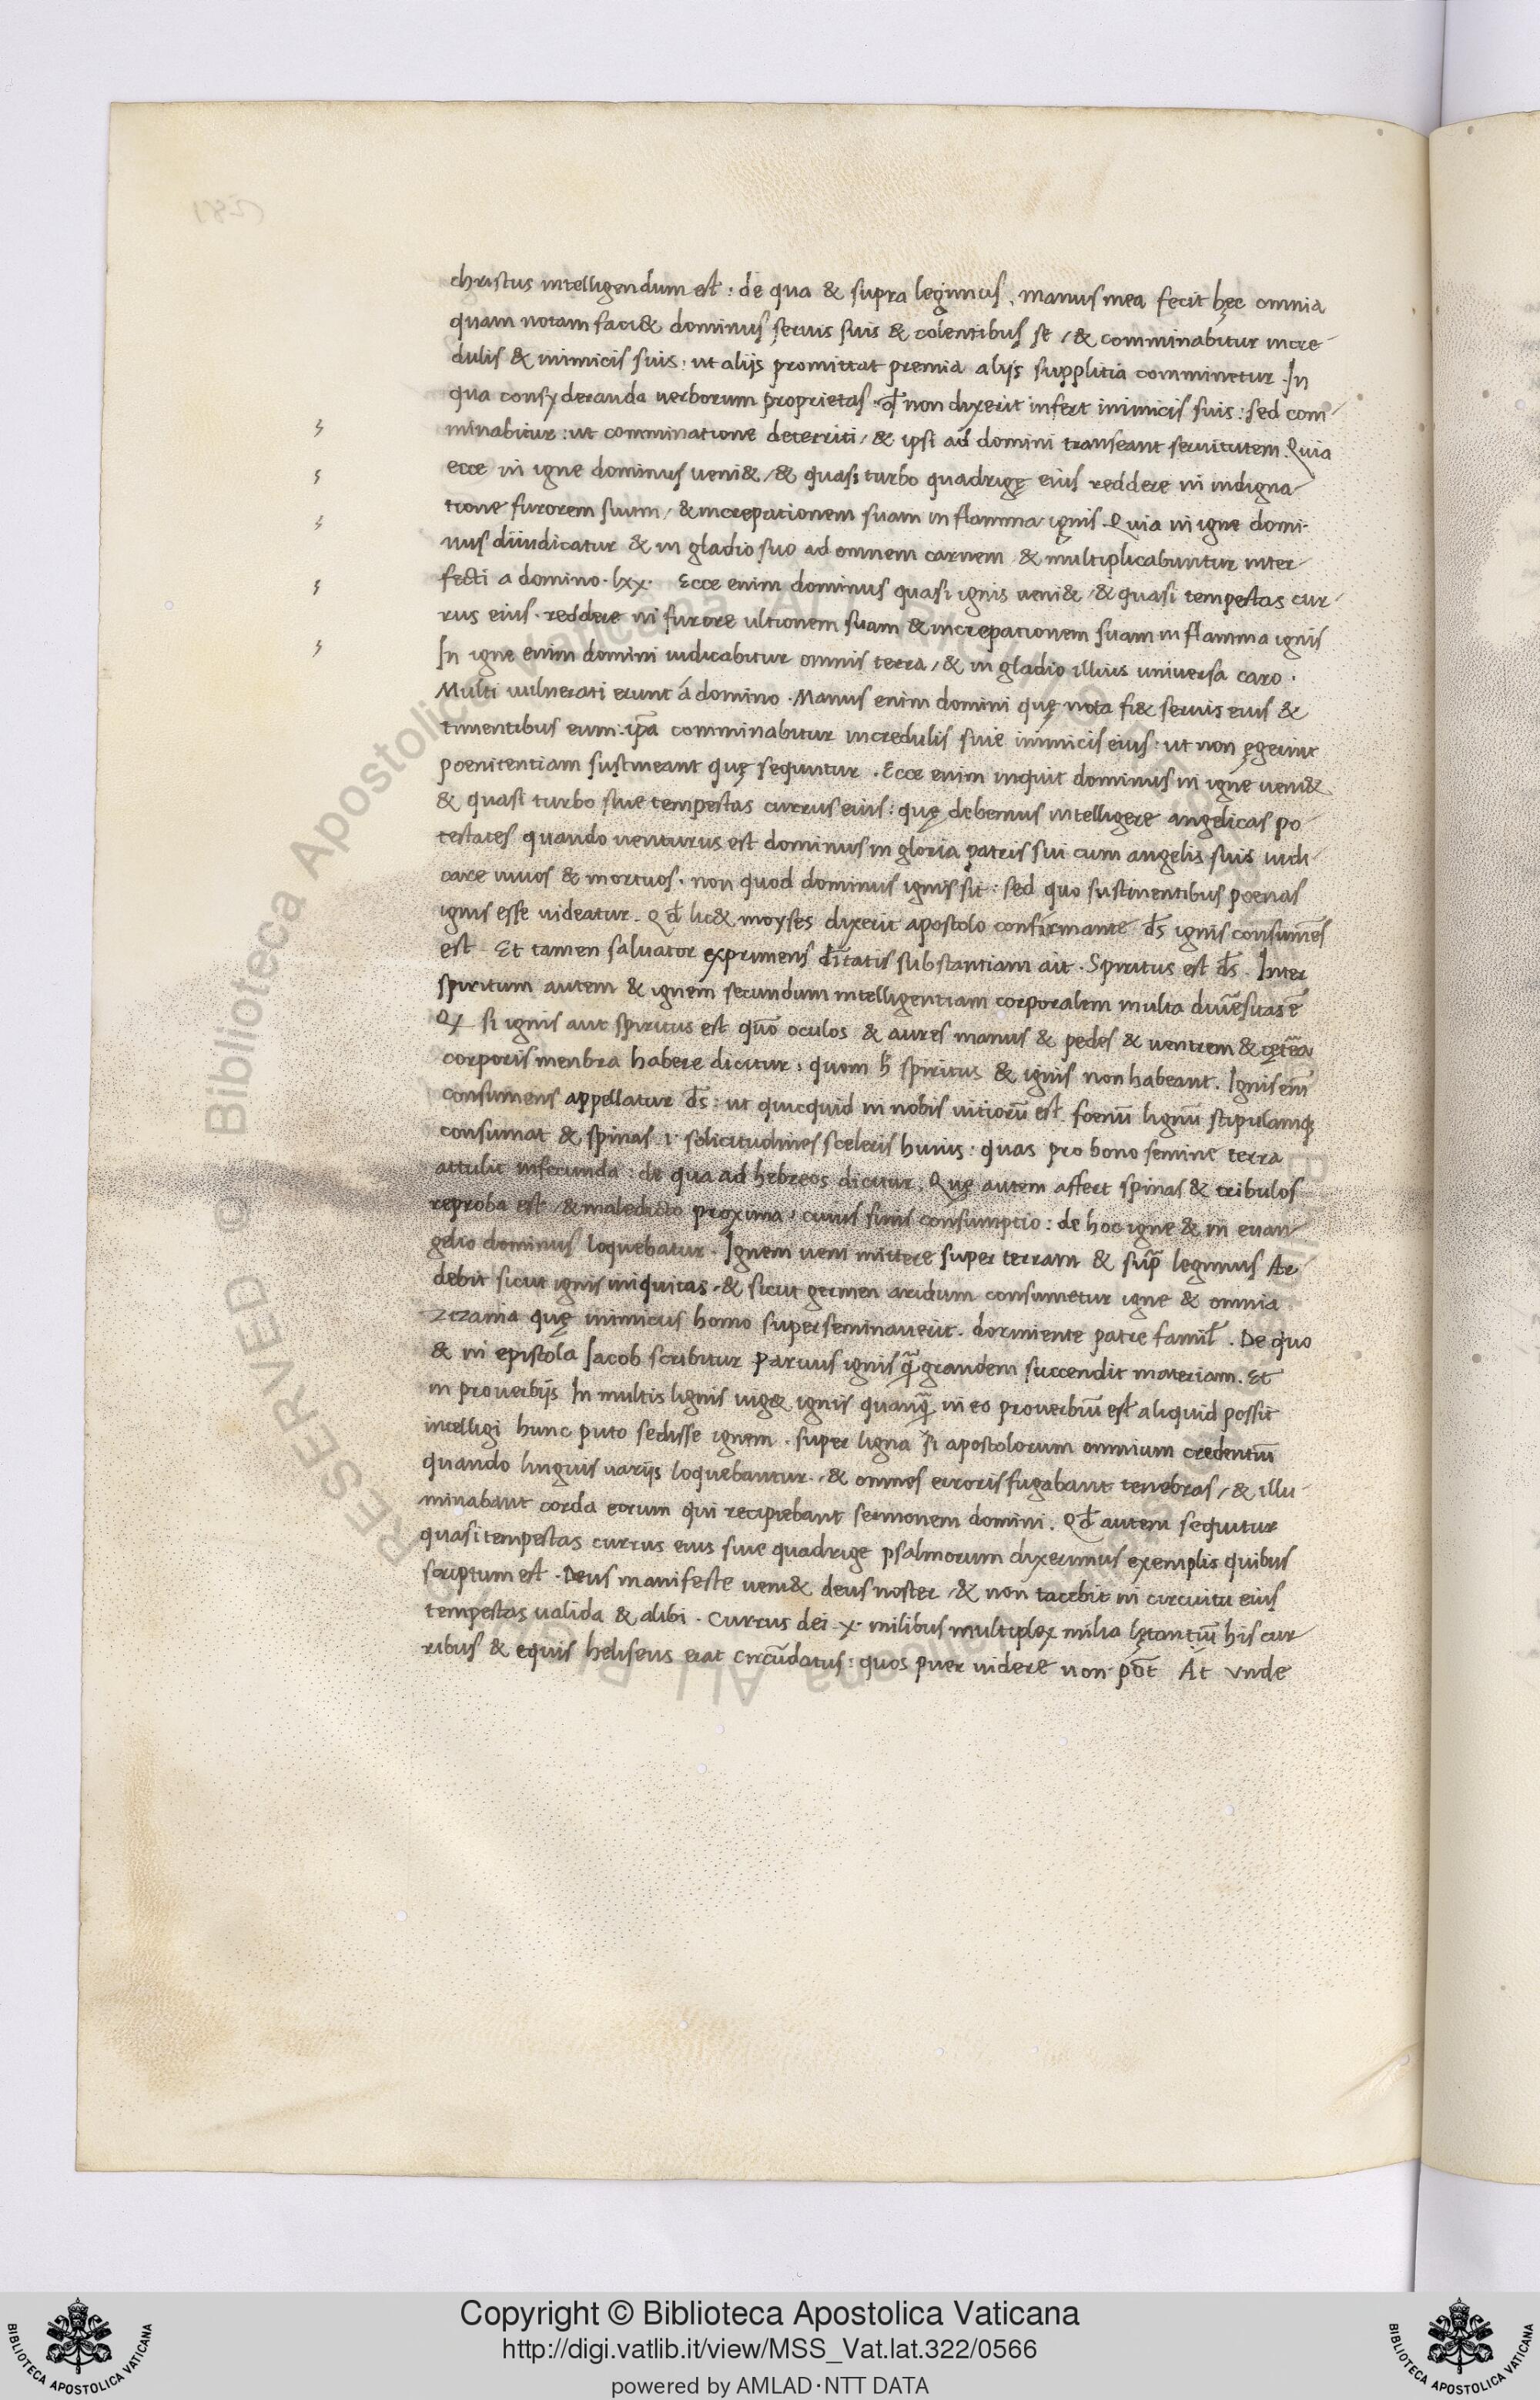 christus intelligendum est : de qua & supra legimus . manus mea fecit hęc omnia
quam notam faci& dominus seruis suis & colentibus se / & comminabitur incre
dulis & inimicis suis : ut alijs promittat premia alijs supplitia comminetur . In
qua consyderanda uerborum proprietas . qđ non dixerit infert inimicis suis : sed com
minabitur : ut comminatione deterriti / & ipsi ad domini transeant seruitutem . Quia
ecce in igne dominus ueni& / & quasi turbo quadrigę eius reddere in indigna
tione furorem suum / & increpationem suam in flamma ignis . Quia in igne domi
nus diiudicatur & in gladio suo ad omnem carnem & multiplicabuntur inter
fecti a domino . lxx . Ecce enim dominus quasi ignis ueni& / & quasi tempestas cur
rus eius . reddere in furore ultionem suam & increpationem suam in flamma ignis
In igne enim domini iudicabitur omnis terra / & in gladio illius universa caro .
Multi uulnerati erunt á domino . Manus enim domini quę nota fi& seruis eius &
timentibus eum . ip̄a comminabitur incredulis siue inimicis eius : ut non ęgerint
poenitentiam sustineant quę sequntur . Ecce enim inquit dominus in igne ueni&
& quasi turbo siue tempestas currus eius : quę debemus intelligere angelicas po
testates quando uenturus est dominus in gloria patris sui cum angelis suis iudi
care uiuos & mortuos . non quod dominus ignis sit : sed quo sustinentibus poenas
ignis esse uideatur . Qđ lic& moyses dixerit apostolo confirmante d̄s ignis consumēs
est . Et tamen saluator exprimens dītatis substantiam ait . Spiritus est d̄s . Inter
spiritum autem & ignem secundum intelligentiam corporalem multa diūesitas ē
Qx si ignis aut spiritus est quō oculos & aures manus & pedes & uentrem & cętēa
corporis menbra habere dicitur : quom h̄ spiritus & ignis non habeant . Ignis em̄
consumens appellatur d̄s : ut quicquid in nobis uitiorū est foenū lignū stipulamq;
consumat & spinas .i. solicitudines sceleris huius : quas pro bono semine terra
attulit infecunda : de qua ad hebreos dicitur . Quę autem affert spinas & tribulos
reproba est / & maledicto proxima : cuius finis consumptio : de hoc igne & in euan
gelio dominus loquebatur . Ignem ueni mittere super terram & sup̄ legimus Ar
debit sicut ignis iniquitas . & sicut germen aridum consumetur igne & omnia
zizania quę inimicus homo superseminauerit . dormiente patre famil̄ . De quo
& in epistola Jacob scribitur paruus ignis q̄ grandem succendit materiam . Et
in prouerbijs In multis lignis uig& ignis quanq̄ in eo prouerbiū est aliquid possit
intelligi hunc puto sedisse ignem . super ligna s̄i apostolorum omnium credentiū
quando linguis uarijs loquebantur . / & omnes erroris fugabant tenebras / & illu
minabant corda eorum qui recipiebant sermonem domini . Qđ autem sequitur
quasi tempestas currus eius siue quadrige psalmorum diximus exemplis quibus
scriptum est . Deus manifeste ueni& deus noster / & non tacebit in circuitu eius
tempestas ualida & alibi . Currus dei .x. milibus multiplex milia lętantiū his cur
ribus & equis heliseus erat circūdatus : quos puer uidere non pōt At vnde
RESERVED © Biblioteca Apostolica Vaticana
Copyright © Biblioteca Apostolica Vaticana
http://digi.vatlib.it/view/MSS_Vat.lat.322/0566
powered by AMLAD·NTT DATA
BIBLIOTECA APOSTOLICA VATICANA
BIBLIOTECA APOSTOLICA VATICANA